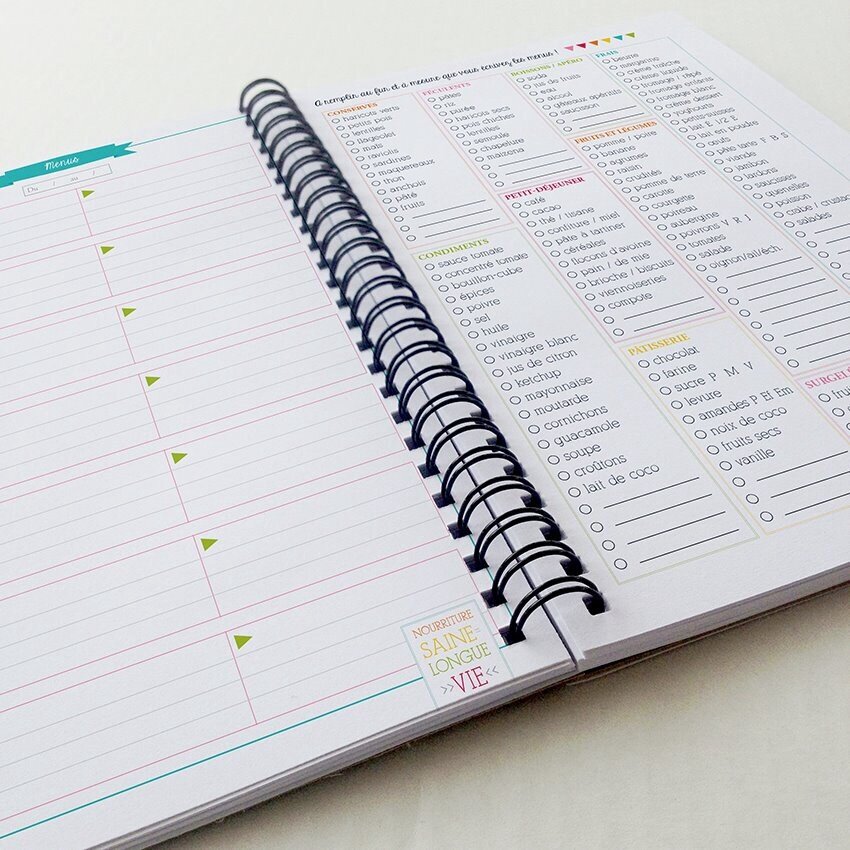 Menus
Du / au /
NOURRITURE
SAINE-
LONGUE
VIE
A remplir au fur et à mesure que vous écrivez les menus !
CONSERVES
haricots verts
petits pois
lentilles
flageolet
maïs
raviolis
sardines
maquereaux
thon
anchois
pâté
fruits
CONDIMENTS
sauce tomate
concentré tomate
bouillon-cube
épices
poivre
sel
huile
vinaigre
vinaigre blanc
jus de citron
ketchup
mayonnaise
moutarde
cornichons
guacamole
soupe
croûtons
lait de coco
FÉCULENTS
pâtes
riz
purée
haricots secs
pois chiches
lentilles
semoule
chapelure
maïzena
PETIT-DÉJEUNER
café
cacao
thé / tisane
confiture / miel
pâte à tartiner
céréales
flocons d'avoine
pain / de mie
brioche / biscuits
viennoiseries
compote
BOISSONS / APÉRO
soda
jus de fruits
eau
alcool
gâteaux apéritifs
saucisson
FRUITS ET LÉGUMES
pomme / poire
banane
agrumes
raisin
crudités
pomme de terre
carotte
courgette
poireau
aubergine
poivrons V R J
tomates
salade
oignon/ail/éch.
PÂTISSERIE
chocolat
farine
sucre P M V
levure
amandes P Ef Em
noix de coco
fruits secs
vanille
FRAIS
beurre
margarine
crème fraîche
crème liquide
fromage / râpé
fromages entiers
fromage blanc
crème dessert
yoghourts
petits-suisses
lait E 1/2 E
lait en poudre
œufs
plats sine F B S
viande
jambon
lardons
saucisses
quenelles
poisson
crabe / crustac
salades
SURGELÉ